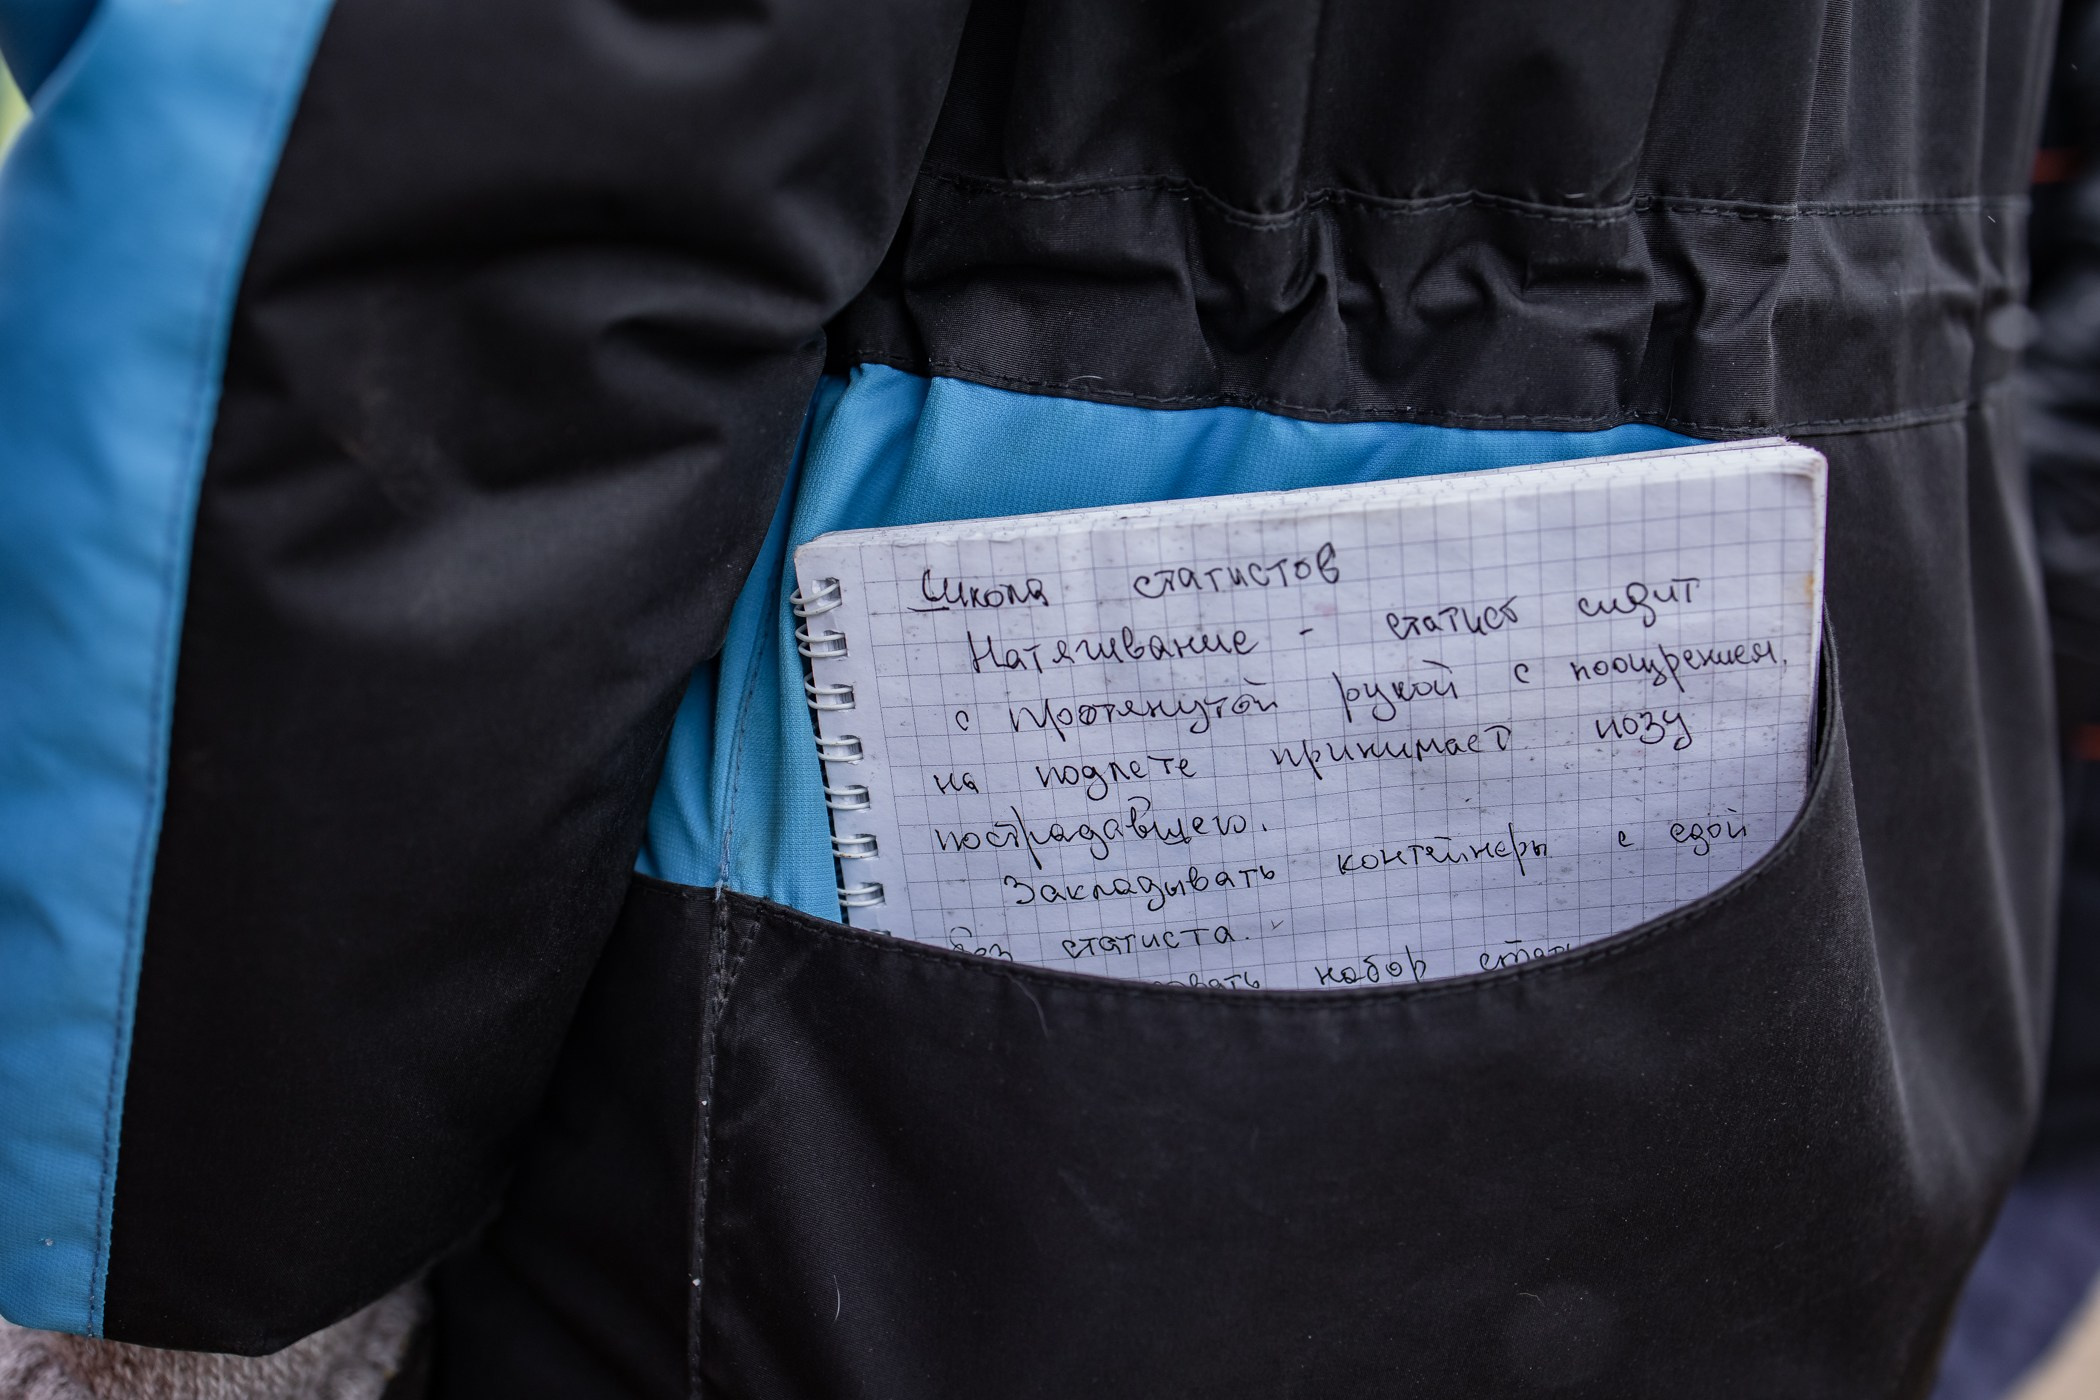 Школа статистов
Натягивание - статист сидит
с протянутой рукой с поощрением,
на подлете принимает позу
пострадавшего.
Закладывать контейнеры с едой
без статиста.
набор